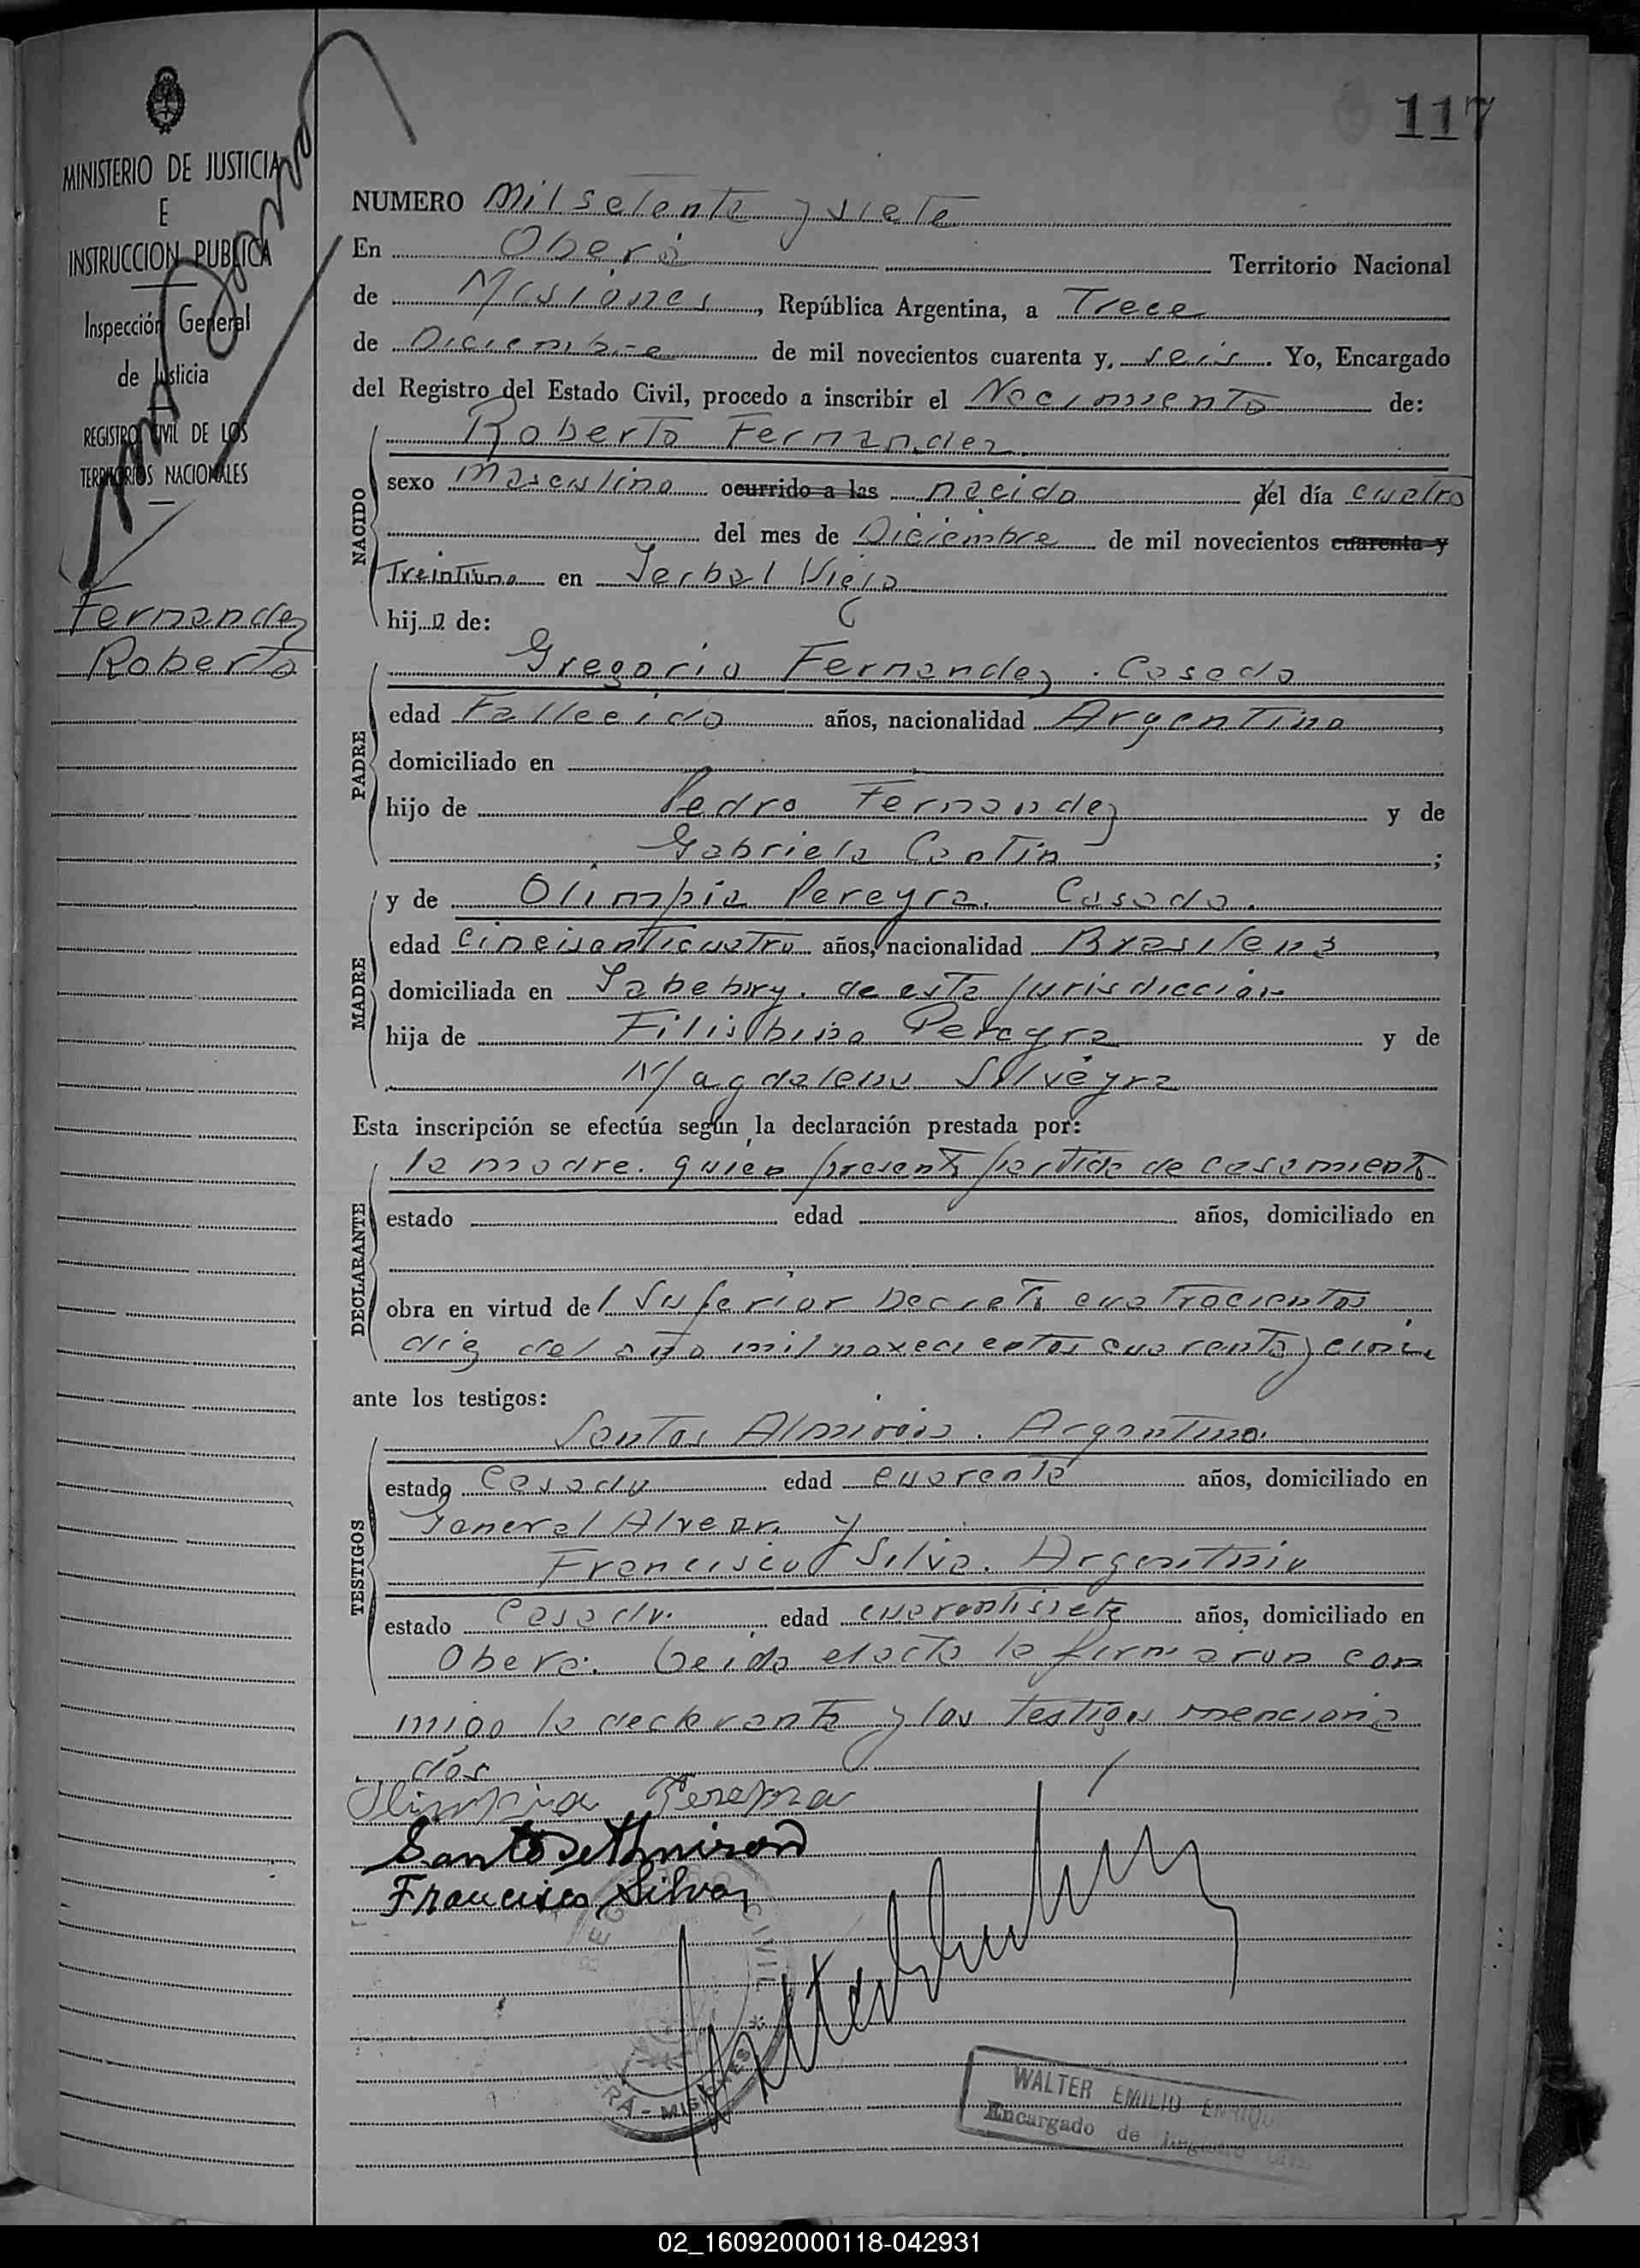 117
MINISTERIO DE JUSTICIA
E
INSTRUCCION PUBLICA
Inspección General
de Justicia
REGISTRO CIVIL DE LOS
TERRITORIOS NACIONALES
Fernandez
Roberto
NUMERO Mil setenta y siete
En Oberá Territorio Nacional
de Misiones, República Argentina, a Trece
de Diciembre de mil novecientos cuarenta y, seis. Yo, Encargado
del Registro del Estado Civil, procedo a inscribir el Nacimiento de:
NACIDO
Roberto Fernandez.
sexo masculino ocurrido a las nacido del día cuatro
del mes de Diciembre de mil novecientos cuarenta y
Treintiuno en Yerbal Viejo
hijo de:
PADRE
Gregorio Fernandez. Casado
edad Fallecido años, nacionalidad Argentino,
domiciliado en
hijo de Pedro Fernandez y de
Gabriela Cantin;
MADRE
y de Olimpia Pereyra. Casada.
edad cincuenticuatro años, nacionalidad Brasilena,
domiciliada en Yabebiry. de esta jurisdicción
hija de Filisbino Pereyra y de
Magdalena Silveyra
Esta inscripción se efectúa según la declaración prestada por:
DECLARANTE
la madre. quien presenta partida de casamiento.
estado edad años, domiciliado en
obra en virtud del Superior Decreto cuatrocientos
diez del año mil novecientos cuarenta y
ante los testigos:
TESTIGOS
Santos Almiron. Argentino.
estado Casado edad cuarenta años, domiciliado en
General Alvear. y
Francisco Silva. Argentino
estado Casado. edad cuarentisiete años, domiciliado en
Oberá. Leida el acta la firmaron con
migo la declarante y los testigos menciona
dos
Olimpia Pereyra
Santos Almiron
Francisco Silva
REG CIVIL
ERÁ - MISIONES
WALTER EMILIO
Encargado de
02_160920000118-042931